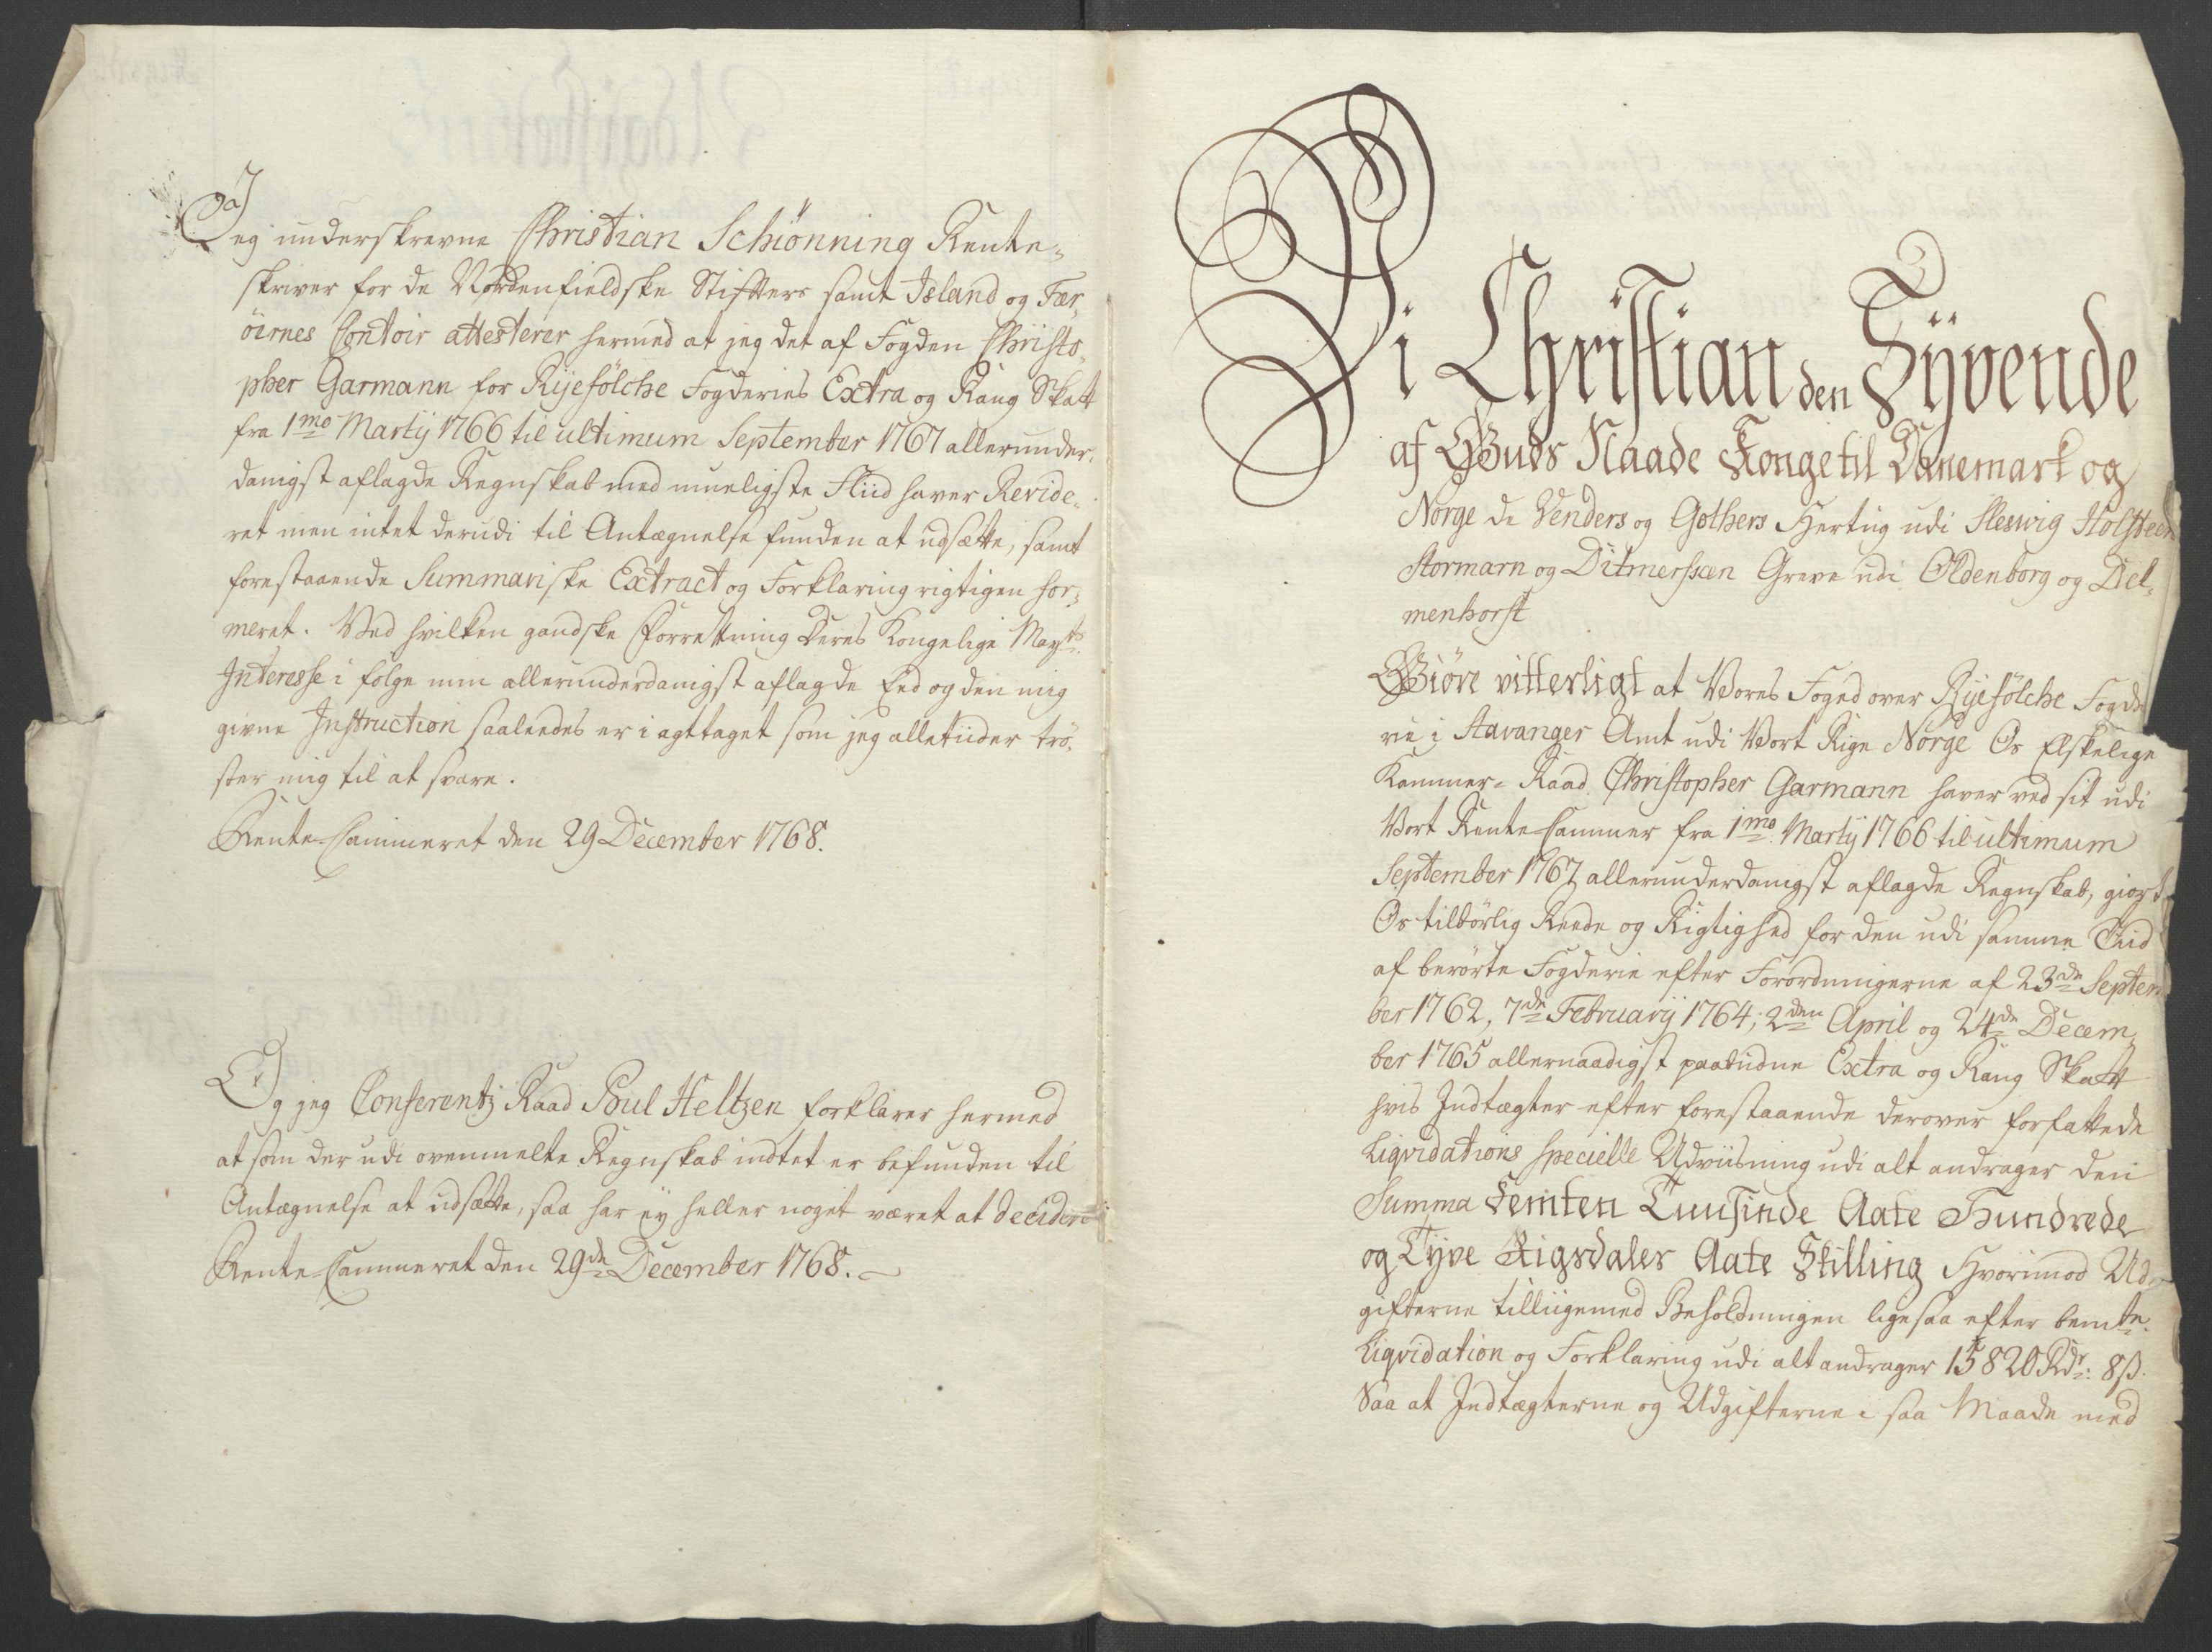 Jeg underskrevne Christian Schiönning Rente-
skriver for de Nordenfieldske Stifters samt Island og Fær-
öernes Contoir attesterer hermed at jeg det af Fogden Christo-
pher Garmann for Ryefölche Fogderies Extra og Rang Skatt
fra 1mo Martij 1766 til ultimum September 1767 allerunder-
danigst aflagde Regnskab med mueligste Fliid haver Revide-
ret men intet derudi til Antægnelse funden at udsætte, samt
forestaaende Summariske Extract og Forklaring rigtigen for-
meret. Ved hvilken gandske Forrettning Deres Kongelige Mayts
Interesse i følge min allerunderdanigst aflagde Eed og den mig
givne Instruction saaleedes er i agttaget som jeg alletiider trö-
ster mig til at svare.
Rente-Cammeret den 29 December 1768.
Og jeg Conferentz Raad Poul Heltzen forklarer hermed
at som der udi ovenmelte Regnskab indtet er befunden til
Antægnelse at udsætte, saa har ey heller noget været at decidere
Rente-Cammeret den 29de December 1768.
Vi Christian den Syvende
af Guds Naade Konge til Danemark og
Norge de Venders og Gothers Hertug udi Sleswig Holsteen
Stormarn og Ditmerschen Greve udi Oldenborg og Del-
menhorst
Giøre vitterligt at Vores Foged over Ryefölche Fogde-
rie i Stavanger Amt udi Vort Rige Norge Os Elskelige
Kammer-Raad Christopher Garmann haver ved sit udi
Vort Rente-Cammer fra 1mo Martij 1766 til ultimum
September 1767 allerunderdanigst aflagde Regnskab, giort
Os tilbörlig Reede og Rigtighed for den udi samme Tiid
af berörte Fogderie efter Forordningerne af 23de Septem-
ber 1762, 7de Februarij 1764, 2den April og 24de Decem-
ber 1765 allernaadigst paabudne Extra og Rang Skatt
hvis Indtægter efter forestaaende derover forfattede
Liqvidations specielle Udviisning udi alt andrager den
Summa Femten Tuusinde Aate Hundrede
og Tyve Rigsdaler Aate Skilling Hvorimod Ud-
gifterne tilliigemed Beholdningen ligesaa efter bemte
Liqvidation og Forklaring udi alt andrager 15820 Rdr: 8 ß.
Saa at Indtægterne og Udgifterne i saa Maade med